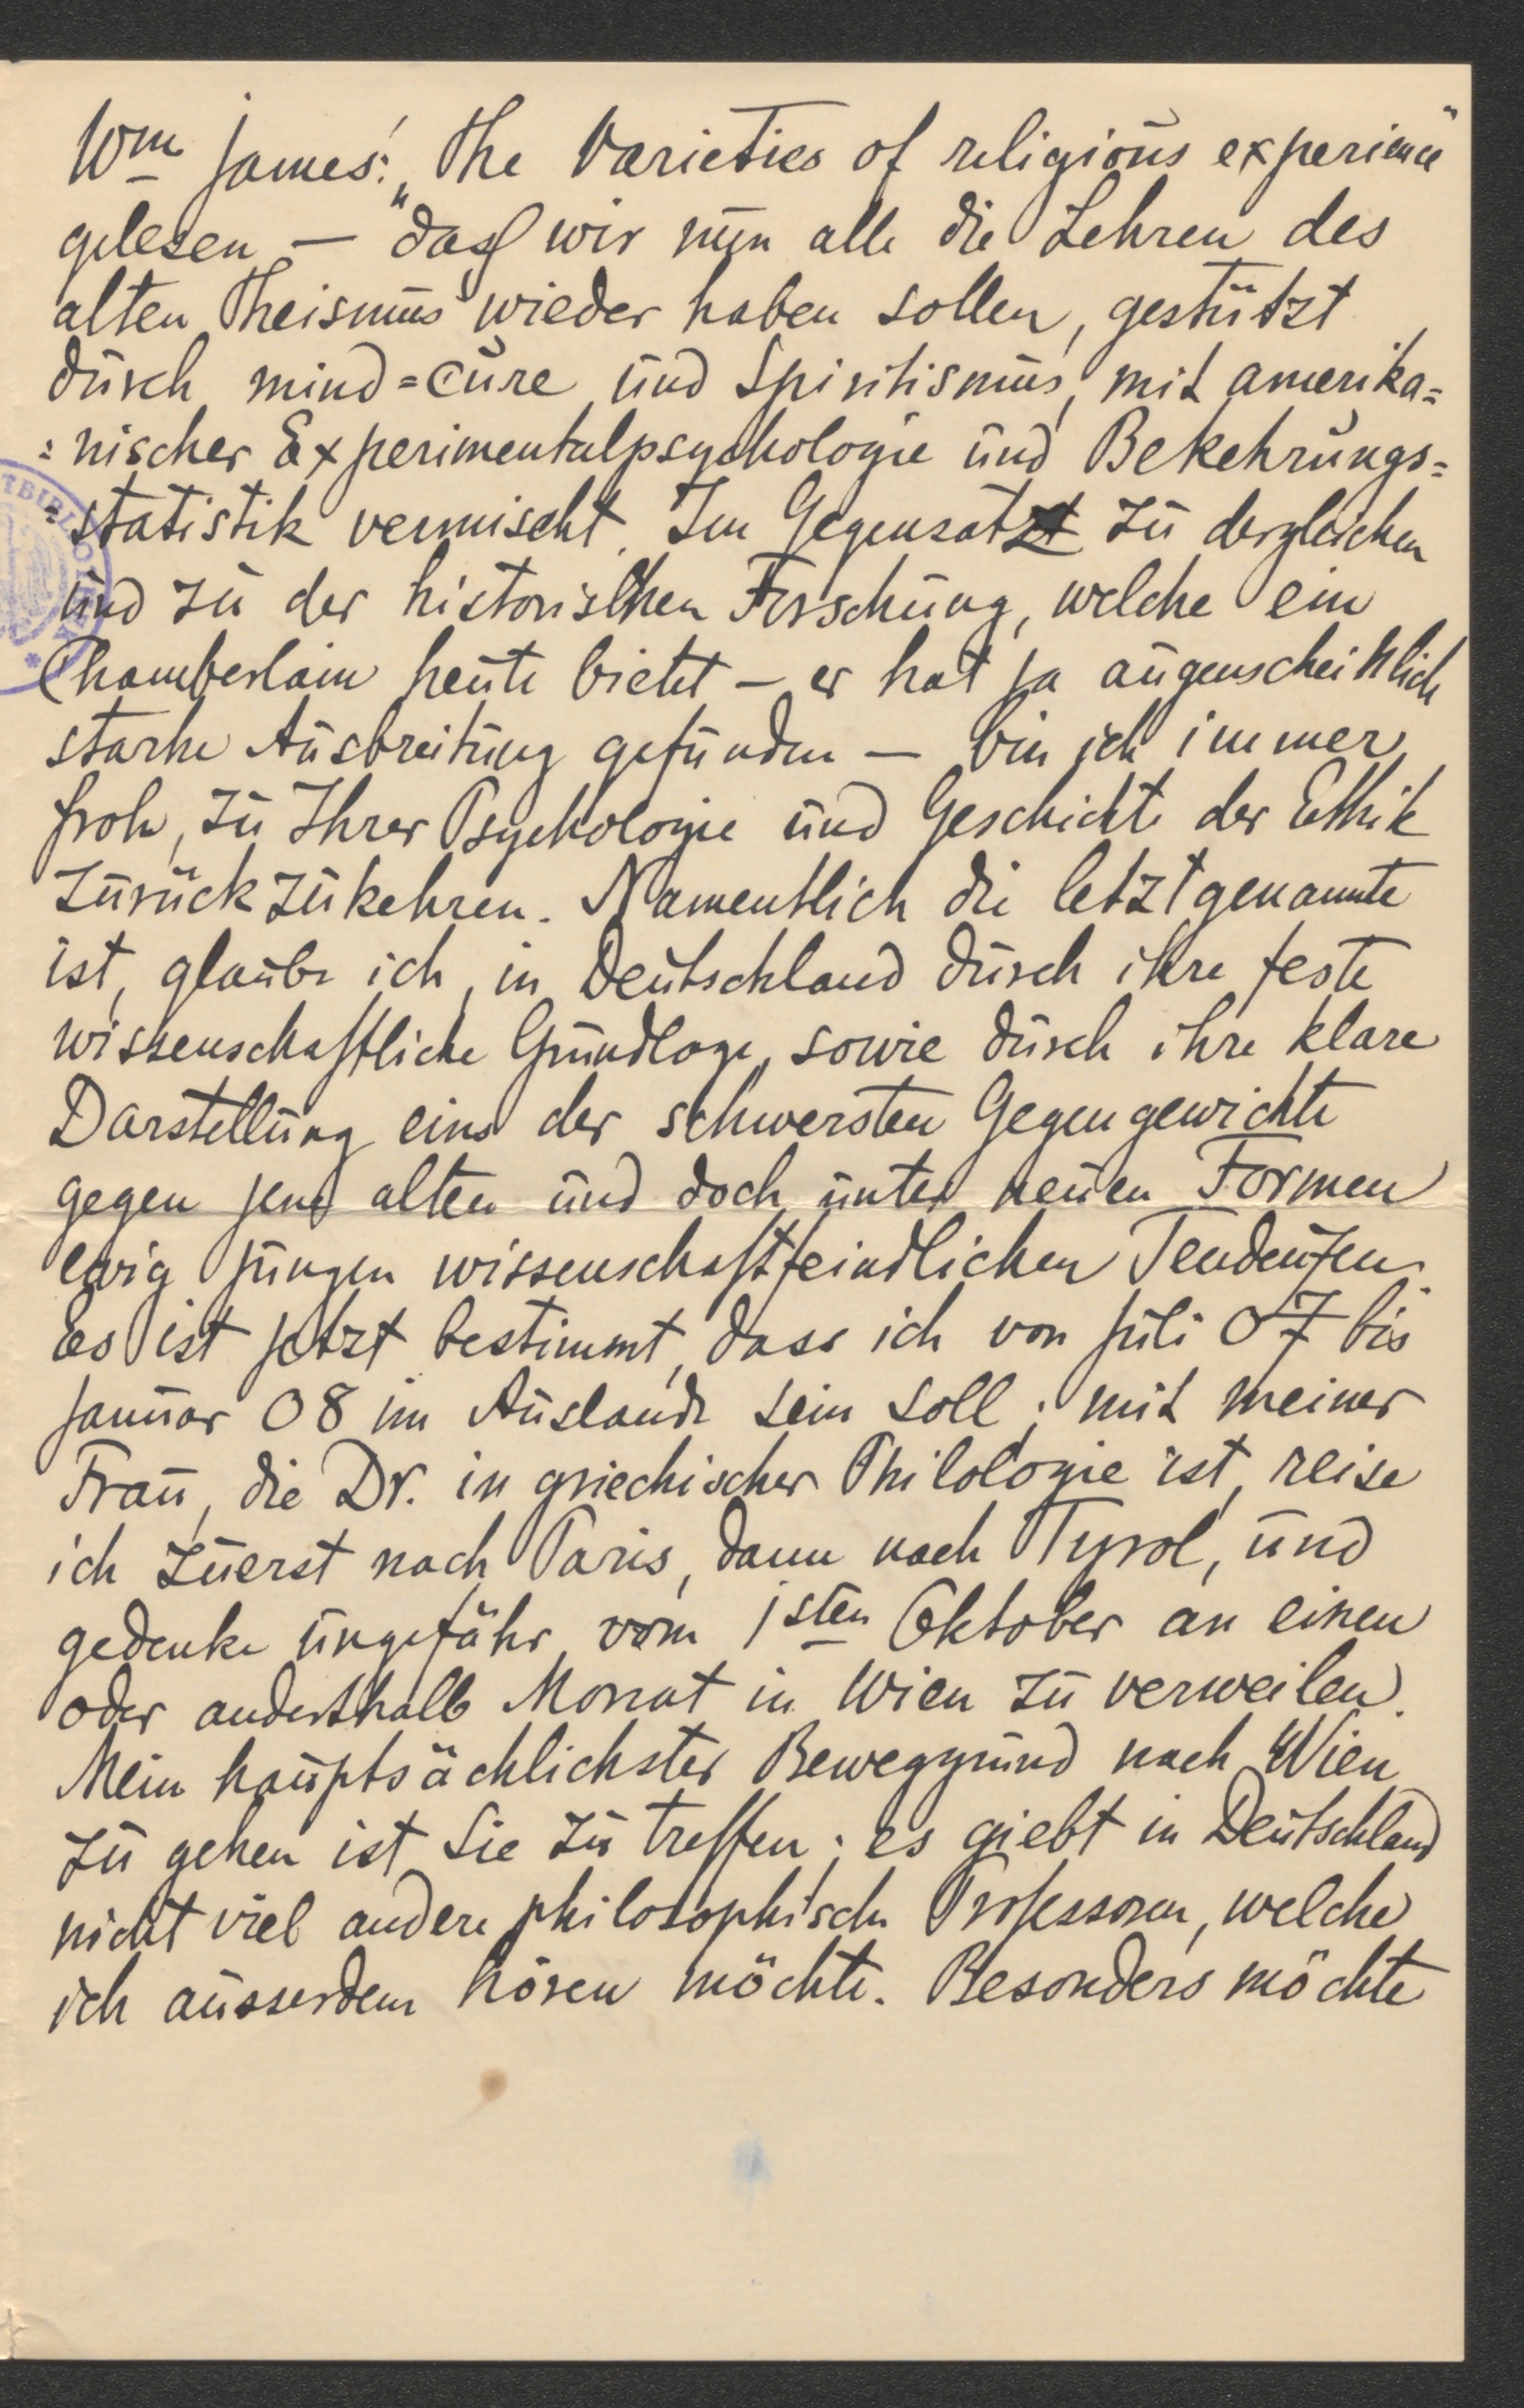 Wm James': „The Varieties of religious experience"
gelesen – daß wir nun alle die Lehren des
alten Theismus wieder haben sollen, gestützt
durch mind=cure und Spiritismus, mit amerika=
=nischer Experimentalpsychologie und Bekehrungs=
=statistik vermischt. Im Gegensatz zu dergleichen
und zu der historischen Forschung, welche ein
Chamberlain heute bietet – er hat ja augenscheinlich
starke Ausbreitung gefunden – bin ich immer
froh, zu Ihrer Psychologie und Geschichte der Ethik
zurückzukehren. Namentlich die letztgenannte
ist, glaube ich, in Deutschland durch ihre feste
wissenschaftliche Grundlage, sowie durch ihre klare
Darstellung eins der schwersten Gegengewichte
gegen jene alten und doch unter neuen Formen
ewig jungen wissenschaftfeindlichen Tendenzen.
Es ist jetzt bestimmt, dass ich von Juli 07 bis
Januar 08 im Auslande sein soll; mit meiner
Frau, die Dr. in griechischer Philologie ist, reise
ich zuerst nach Paris, dann nach Tyrol, und
gedenke ungefähr vom 1sten Oktober an einen
oder anderthalb Monat in Wien zu verweilen.
Mein hauptsächlichster Beweggrund nach Wien
zu gehen ist Sie zu treffen; es giebt in Deutschland
nicht viel andere philosophische Professoren, welche
ich ausserdem hören möchte. Besonders möchte